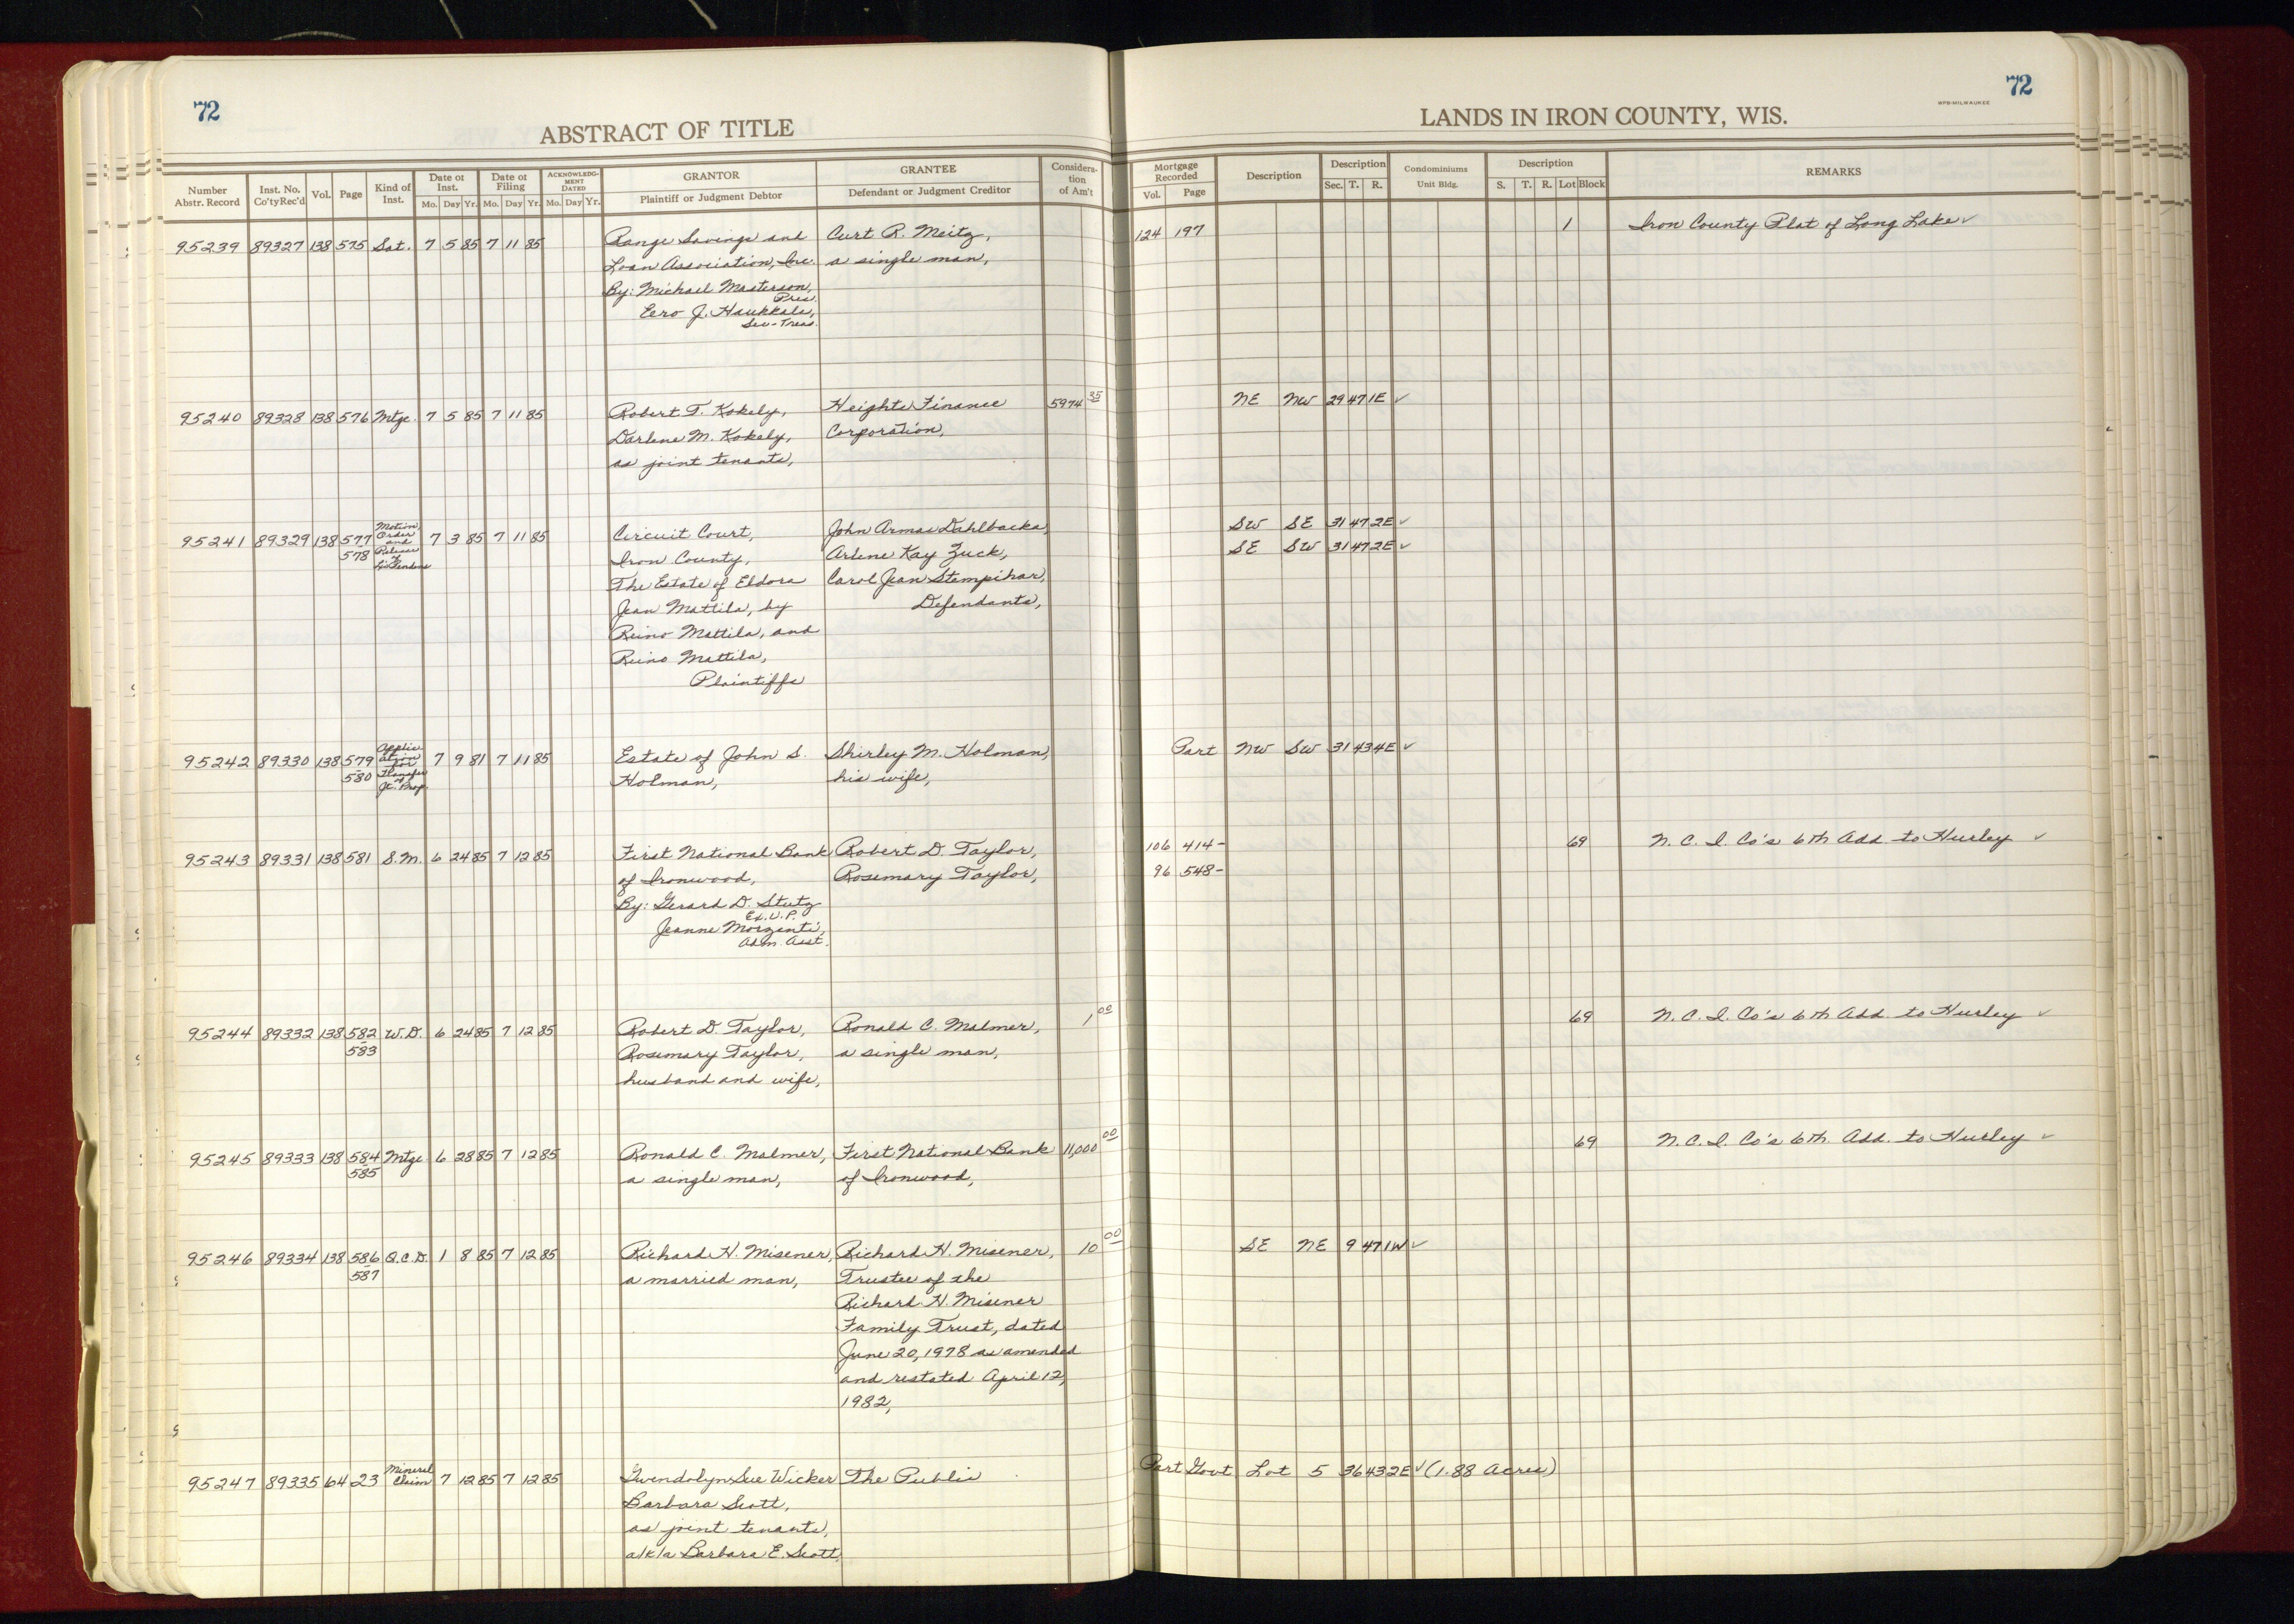 72
ABSTRACT OF TITLE
72
WPB-MILWAUKEE
LANDS IN IRON COUNTY, WIS.
Number Abstr. Record | Inst. No. Co'ty Rec'd | Vol. | Page | Kind of Inst. | Date of Inst. Mo. Day Yr. | Date of Filing Mo. Day Yr. | ACKNOWLEDGMENT DATED Mo. Day Yr. | GRANTOR Plaintiff or Judgment Debtor | GRANTEE Defendant or Judgment Creditor | Consideration of Am't | Mortgage Recorded Vol. Page | Description | Description Sec. T. R. | Condominiums Unit Bldg. | Description S. T. R. Lot Block | REMARKS
95239 89327 138 575 Sat. 7 5 85 7 11 85 Range Savings and Curt R. Meitz, 124 197 1 Iron County Plat of Long Lake ✓
Loan Association, Inc. a single man,
By: Michael Masterson,
Pres.
Eero J. Haukkala,
Sec-Treas.
95240 89328 138 576 Mtge. 7 5 85 7 11 85 Robert T. Kokely, Heights Finance 5974 35 NE NW 29 47 1E ✓
Darlene M. Kokely, Corporation,
as joint tenants,
95241 89329 138 577 578 Motion, Order and Release of Lis Pendens 7 3 85 7 11 85 Circuit Court, John Armas Dahlbacka, SW SE 31 47 2E ✓
Iron County, Arlene Kay Zuck, SE SW 31 47 2E ✓
The Estate of Eldora Carol Jean Stempihar,
Jean Mattila, by Defendants,
Reino Mattila, and
Reino Mattila,
Plaintiffs
95242 89330 138 579 580 Application for Transfer of Jt. Prop. 7 9 81 7 11 85 Estate of John S. Shirley M. Holman, Part NW SW 31 43 4E ✓
Holman, his wife,
95243 89331 138 581 S.M. 6 24 85 7 12 85 First National Bank Robert D. Taylor, 106 414- 69 N. C. I. Co's 6th Add. to Hurley ✓
of Ironwood, Rosemary Taylor, 96 548-
By: Gerard D. Stutz
Ex.V.P.
Jeanne Morzenti,
Adm. Asst.
95244 89332 138 582 583 W.D. 6 24 85 7 12 85 Robert D. Taylor, Ronald C. Malmer, 1 00 69 N. C. I. Co's 6th Add. to Hurley ✓
Rosemary Taylor, a single man,
husband and wife,
95245 89333 138 584 585 Mtge 6 28 85 7 12 85 Ronald C. Malmer, First National Bank 11,000 00 69 N. C. I. Co's 6th Add. to Hurley ✓
a single man, of Ironwood,
95246 89334 138 586 587 Q.C.D. 1 8 85 7 12 85 Richard H. Misener, Richard H. Misener, 10 00 SE NE 9 47 1W ✓
a married man, Trustee of the
Richard H. Misener
Family Trust, dated
June 20, 1978 as amended
and restated April 12,
1982,
95247 89335 64 23 Mineral Claim 7 12 85 7 12 85 Gwendolyn Sue Wicker The Public Part Govt Lot 5 36 43 2E ✓ (1.88 Acres)
Barbara Scott,
as joint tenants,
a/k/a Barbara E. Scott,